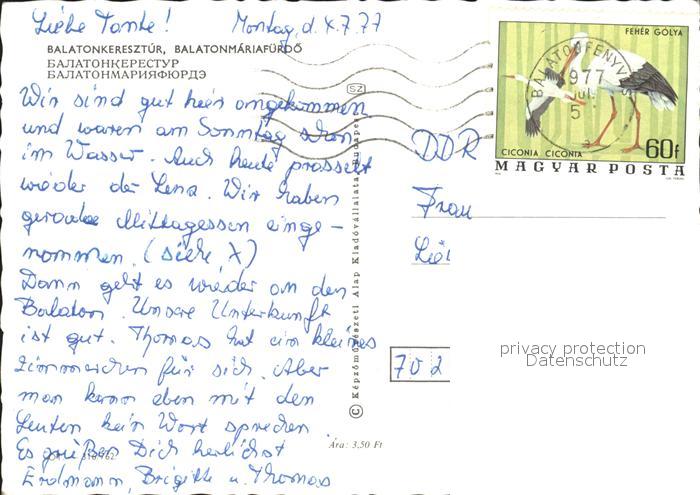 Liebe Tante! Montag, d. 4.7.77
BALATONKERESZTÚR, BALATONMÁRIAFÜRDŐ
БАЛАТОНКЕРЕСТУР
БАЛАТОНМАРИЯФЮРДЭ
Wir sind gut hier angekommen
und waren am Sonntag schon
im Wasser. Auch heute prasselt
wieder der Lenz. Wir haben
gerade Mittagessen einge-
nommen. (siehe X)
Dann geht es wieder an den
Balaton. Unsere Unterkunft
ist gut. Thomas hat ein kleines
Zimmerchen für sich. Aber
man kann eben mit den
Leuten kein Wort sprechen.
Es grüßen Dich herzlichst
Erdmann, Brigitte u. Thomas
Ára: 3,50 Ft
SZ
© Képzőművészeti Alap Kiadóvállalata, Budapest
FEHÉR GÓLYA
BALATONFENYVES
977
JUL.
5
CICONIA CICONIA
60f
MAGYAR POSTA
DDR
Frau
702
privacy protection
Datenschutz